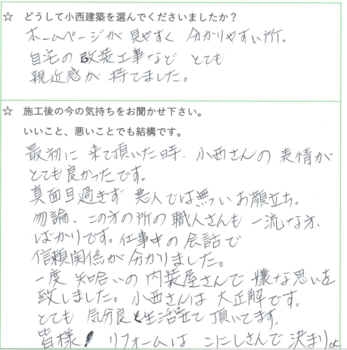 ☆ どうして小西建築を選んでくださいましたか？
ホームページが見やすく 分かりやすい所。
自宅の改装工事など とても
親近感が 持てました。
☆ 施工後の今の気持ちをお聞かせ下さい。
いいこと、悪いことでも結構です。
最初に 来て頂いた時、小西さんの 表情が
とても良かったです。
真面目過ぎず 悪人では無いお顔立ち。
勿論、この方の所の職人さんも 一流な方
ばかりです。仕事中の会話で
信頼関係が 分かりました。
一度 知合いの 内装屋さんで 嫌な思いを
致しました。小西さんは 大正解です。
とても 気分良く生活させて 頂いてます。
皆様! リフォームは こにしさんで 決まり